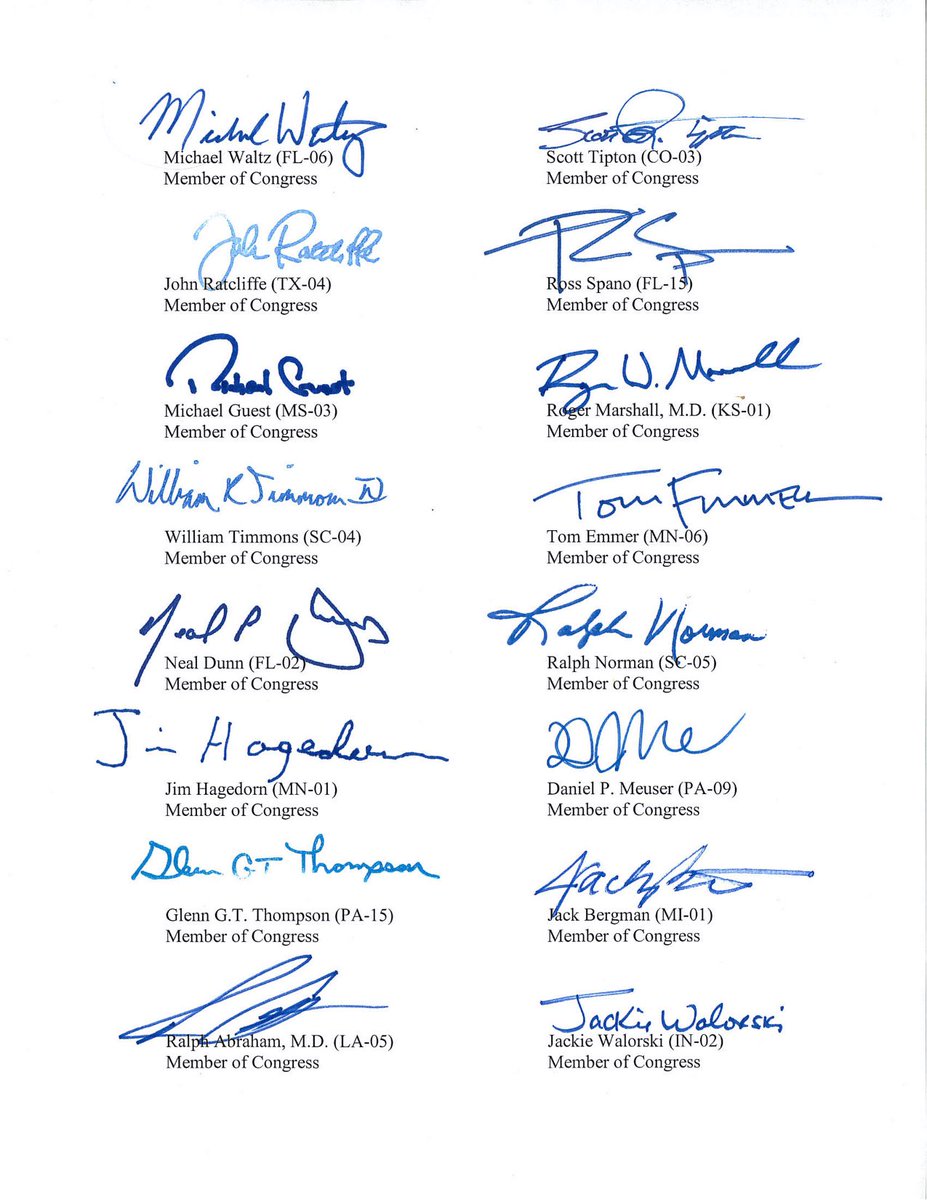 Michael Waltz
Michael Waltz (FL-06)
Member of Congress
Scott R. Tipton
Scott Tipton (CO-03)
Member of Congress
John Ratcliffe
John Ratcliffe (TX-04)
Member of Congress
Ross Spano (FL-15)
Member of Congress
Michael Guest
Michael Guest (MS-03)
Member of Congress
Roger W. Marshall
Roger Marshall, M.D. (KS-01)
Member of Congress
William R Timmons IV
William Timmons (SC-04)
Member of Congress
Tom Emmer
Tom Emmer (MN-06)
Member of Congress
Neal P Dunn
Neal Dunn (FL-02)
Member of Congress
Ralph Norman
Ralph Norman (SC-05)
Member of Congress
Jim Hagedorn
Jim Hagedorn (MN-01)
Member of Congress
Daniel P. Meuser (PA-09)
Member of Congress
Glenn GT Thompson
Glenn G.T. Thompson (PA-15)
Member of Congress
Jack Bergman (MI-01)
Member of Congress
Ralph Abraham, M.D. (LA-05)
Member of Congress
Jackie Walorski
Jackie Walorski (IN-02)
Member of Congress